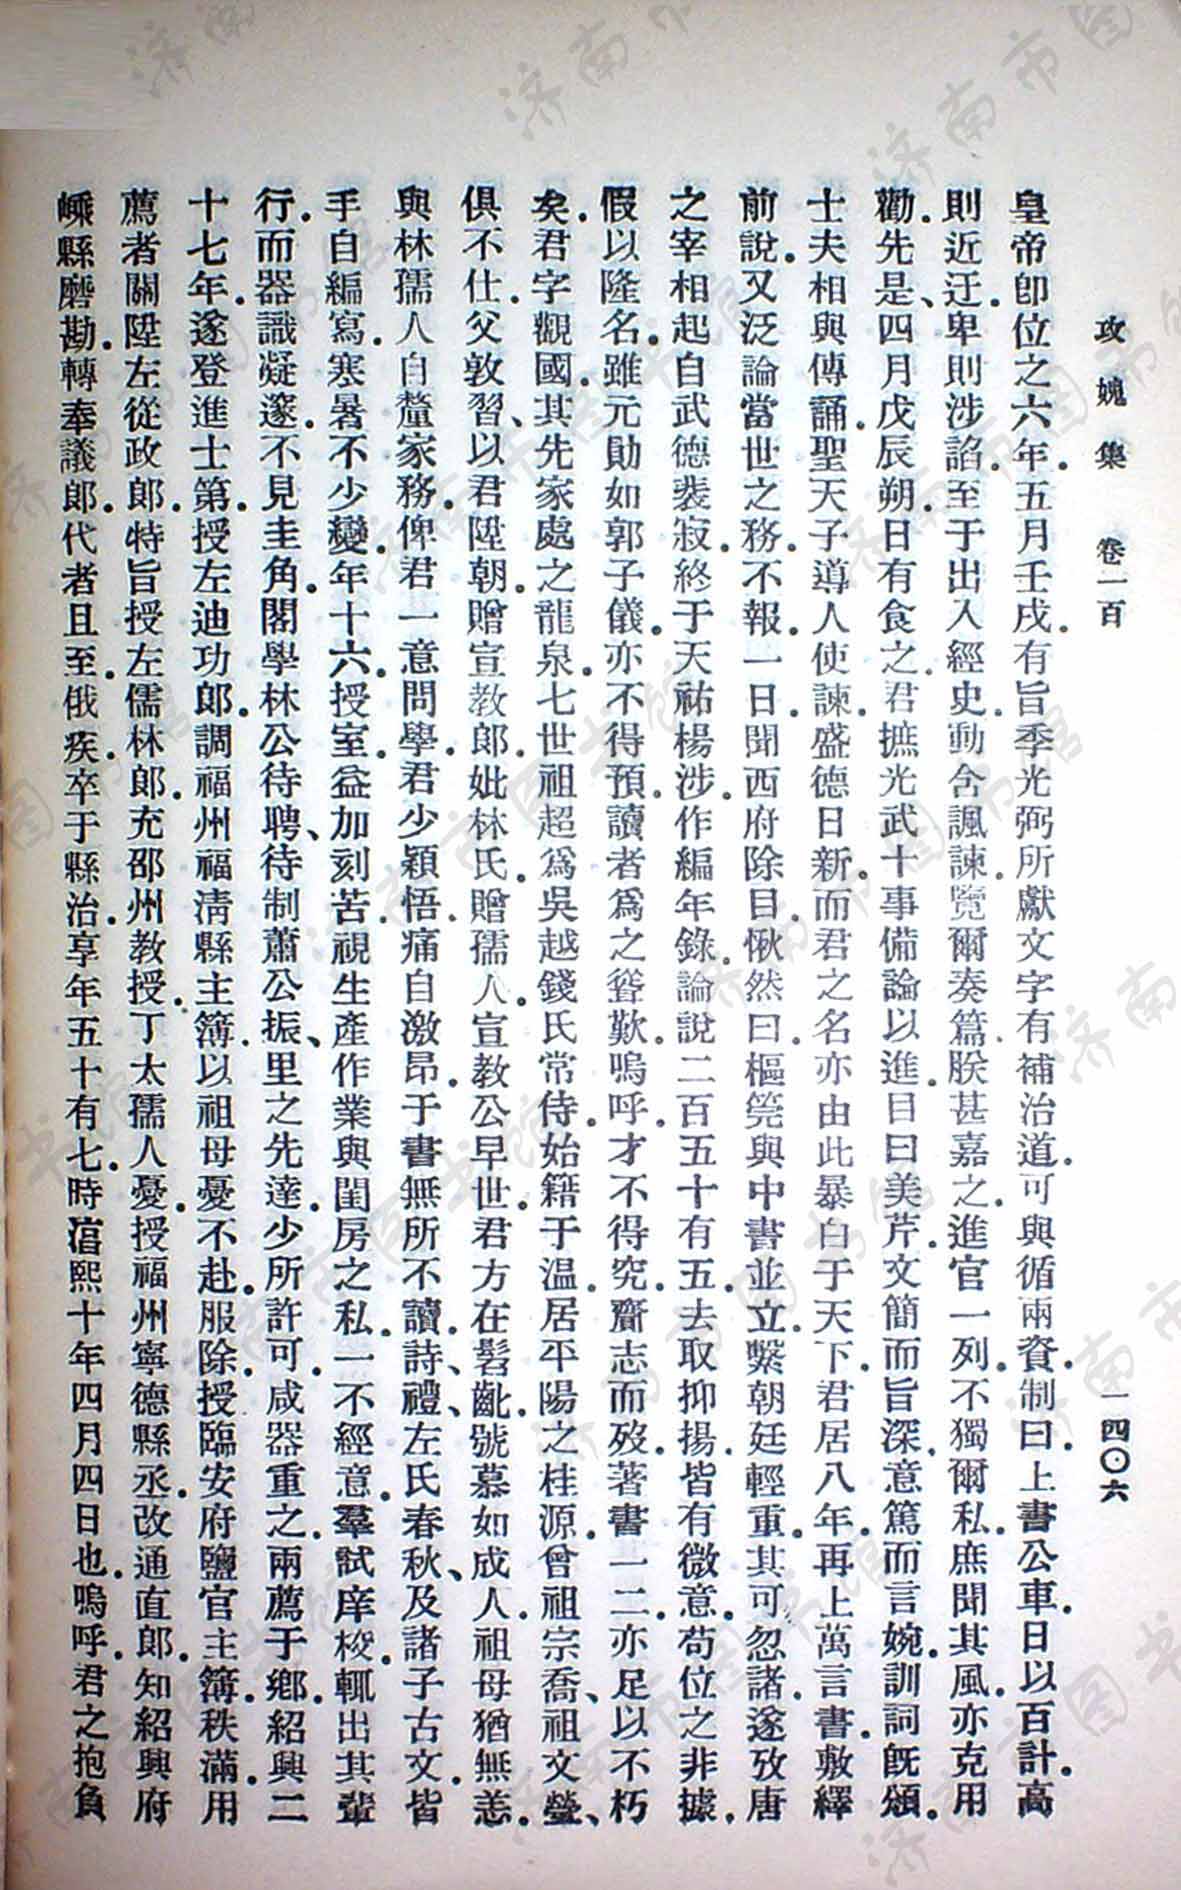 攻媿集　卷一百　一四〇六
皇帝卽位之六年.五月壬戌.有旨季光弼所獻文字有補治道.可與循兩資.制曰.上書公車.日以百計.高
則近迂.卑則涉諂.至于出入經史.動含諷諫.覽爾奏篇.朕甚嘉之.進官一列.不獨爾私.庶聞其風.亦克用
勸.先是、四月戊辰朔.日有食之.君摭光武十事備論以進.目曰美芹.文簡而旨深.意篤而言婉.訓詞旣頒.
士夫相與傳誦.聖天子導人使諫.盛德日新.而君之名亦由此暴白于天下.君居八年.再上萬言書.敷繹
前說.又泛論當世之務.不報.一日.聞西府除目.愀然曰.樞筦與中書並立.繫朝廷輕重.其可忽諸.遂攷唐
之宰相.起自武德裴寂.終于天祐楊涉.作編年錄.論說二百五十有五.去取抑揚.皆有微意.苟位之非據.
假以隆名.雖元勛如郭子儀.亦不得預.讀者爲之聳歎.嗚呼.才不得究.齎志而歿.著書一二.亦足以不朽
矣.君字觀國.其先家處之龍泉.七世祖超.爲吳越錢氏常侍.始籍于溫.居平陽之桂源.曾祖宗喬、祖文瑩、
俱不仕.父敦習、以君陞朝.贈宣教郎.妣林氏.贈孺人.宣教公早世.君方在髫齔.號慕如成人.祖母猶無恙.
與林孺人自釐家務.俾君一意問學.君少穎悟.痛自激昂.于書無所不讀.詩、禮、左氏春秋、及諸子古文.皆
手自編寫.寒暑不少變.年十六.授室.益加刻苦.視生產作業與閨房之私.一不經意.羣試庠校.輒出其輩
行.而器識凝邃.不見圭角.閣學林公待聘、待制蕭公振、里之先達.少所許可.咸器重之.兩薦于鄉.紹興二
十七年.遂登進士第.授左迪功郎.調福州福淸縣主簿.以祖母憂不赴.服除.授臨安府鹽官主簿.秩滿.用
薦者關陞左從政郎.特旨授左儒林郎.充邵州教授.丁太孺人憂.授福州寧德縣丞.改通直郎.知紹興府
嵊縣.磨勘.轉奉議郎.代者且至.俄疾.卒于縣治.享年五十有七.時淳熙十年四月四日也.嗚呼.君之抱負